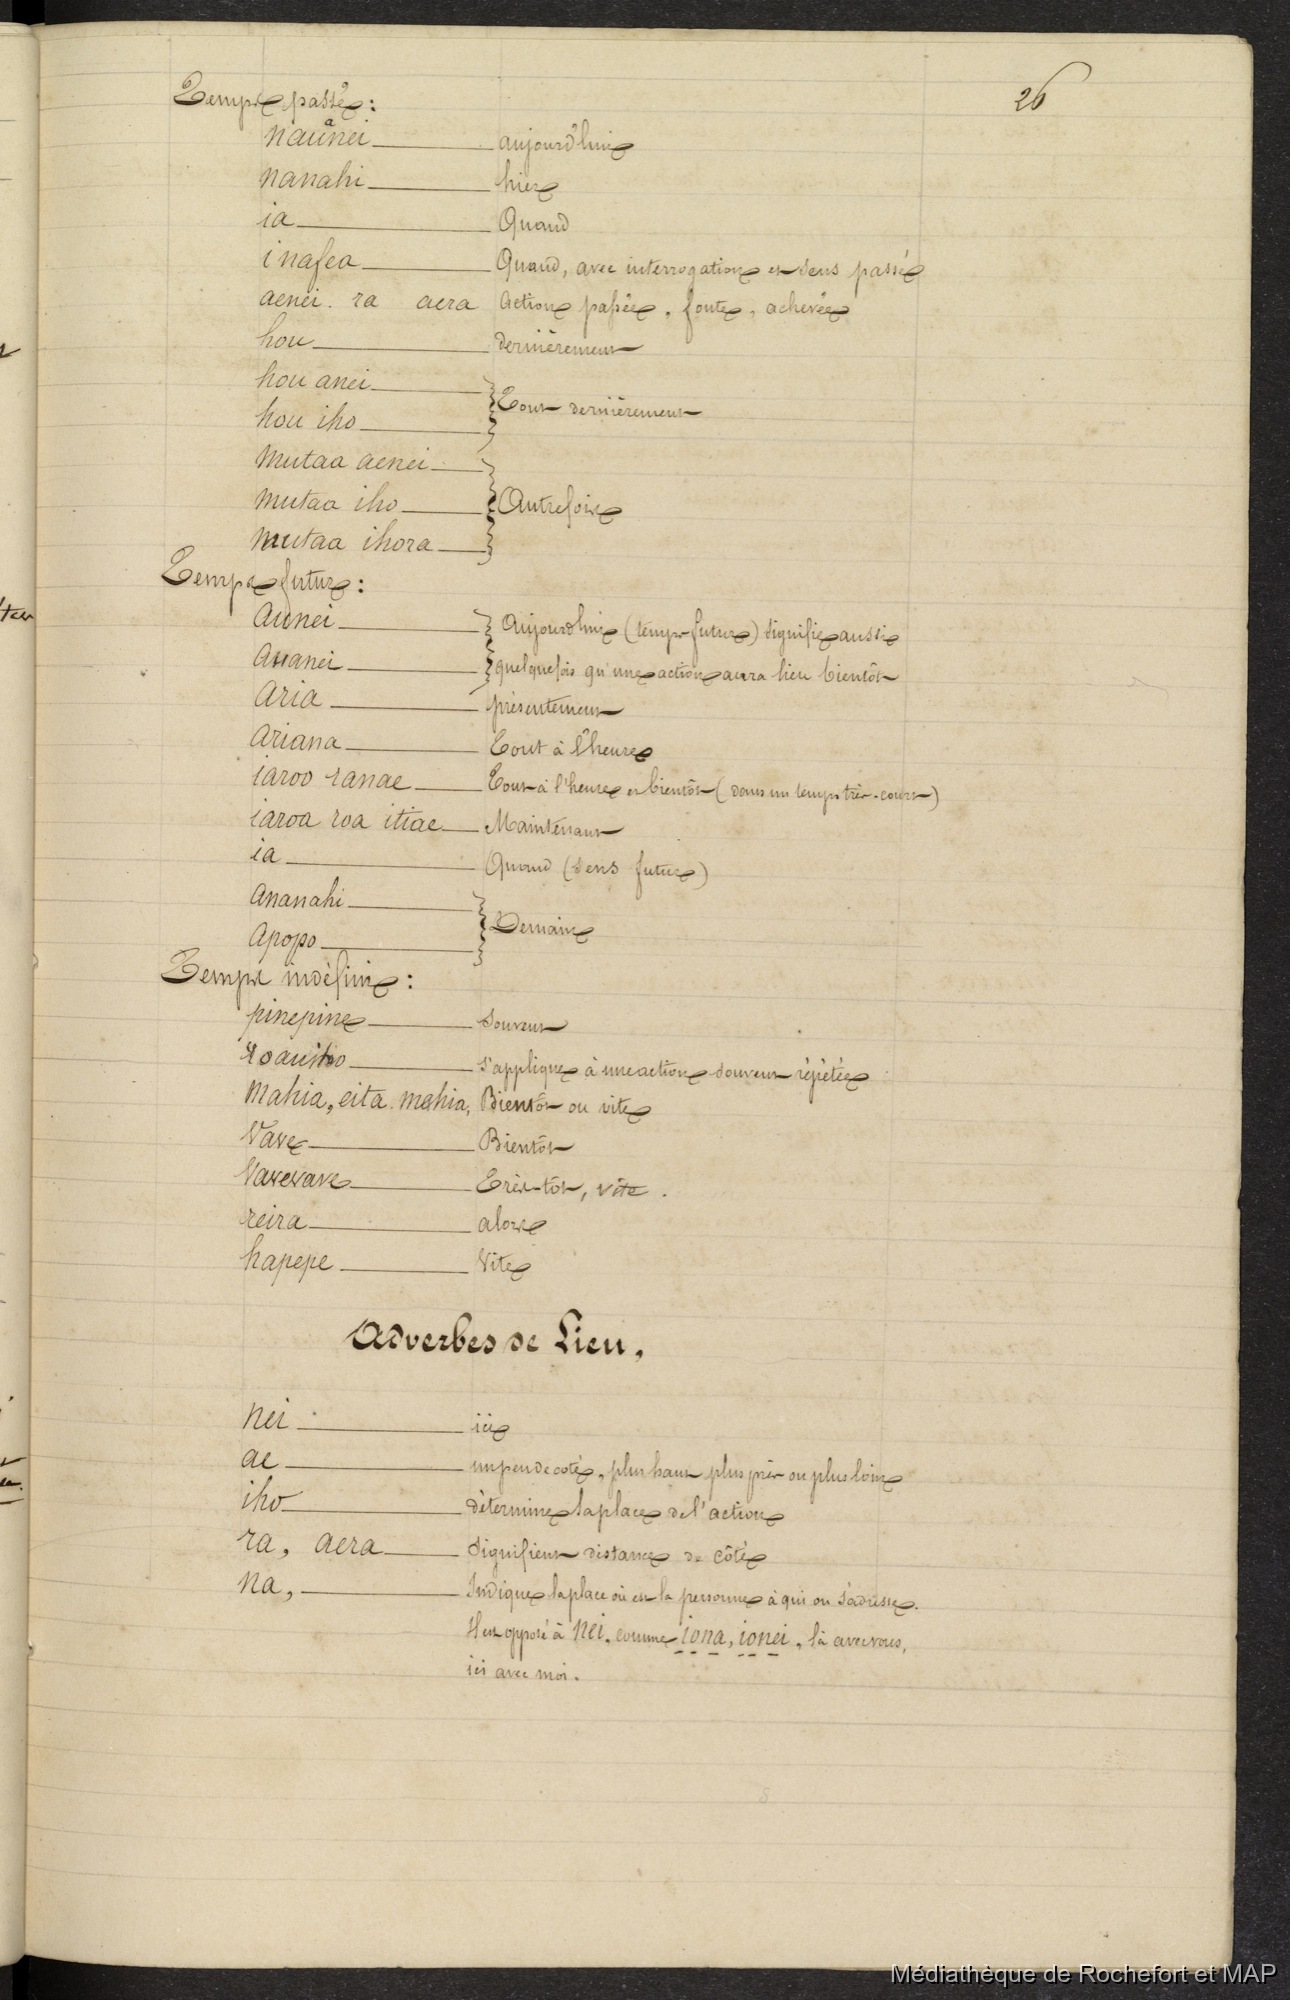 26
Temps passé :
nauânei aujourd'hui
nanahi hier
ia Quand
inafea Quand, avec interrogation et sens passé
aenei. ra aera Action passée, foute, achevée
hou dernièrement
hou anei
Tout dernièrement
hou iho
mutaa aenei
mutaa iho Autrefois
mutaa ihora
Temps futur :
aunei Aujourd'hui (temps futur) signifie aussi
auanei quelquefois qu'une action aura lieu bientôt
aria présentement
ariana Tout à l'heure
iaroo ranae Tout à l'heure et bientôt (dans un temps très-court)
iaroa roa itiae Maintenant
ia Quand (sens futur)
ananahi
Demain
apopo
Temps indéfini :
pinepine souvent
s'applique à une action souvent répétée
Mahia, eita mahia, Bientôt ou vite
Vave Bientôt
Vavevave Très-tôt, vite.
reira alors
hapepe Vite
Adverbes de Lieu.
nei ici
ae un peu de coté, plus haut plus près ou plus loin
iho détermine la place de l'action
ra, aera signifient distance de côté
na, Indique la place où est la personne à qui on s'adresse.
Il est opposé à nei, comme iona, ionei, là avec vous,
ici avec moi.
Médiathèque de Rochefort et MAP